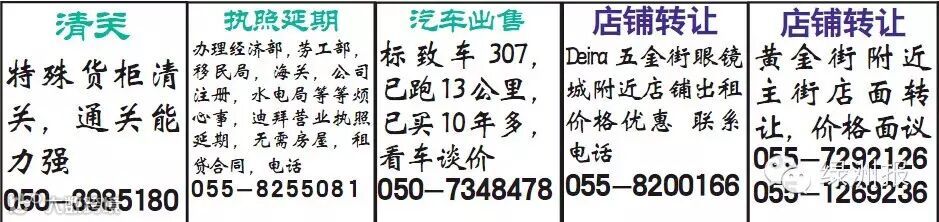 清关
特殊货柜清
关，通关能
力强
050-3985180
执照延期
办理经济部，劳工部，
移民局，海关，公司
注册，水电局等等烦
心事，迪拜营业执照
延期，无需房屋，租
贷合同，电话
055-8255081
汽车出售
标致车 307，
已跑13公里，
已买10年多，
看车谈价
050-7348478
店铺转让
Deira 五金街眼镜
城附近店铺出租
价格优惠 联系
电话
055-8200166
店铺转让
黄金街附近
主街店面转
让，价格面议
055-7292126
055-1269236
绿洲报